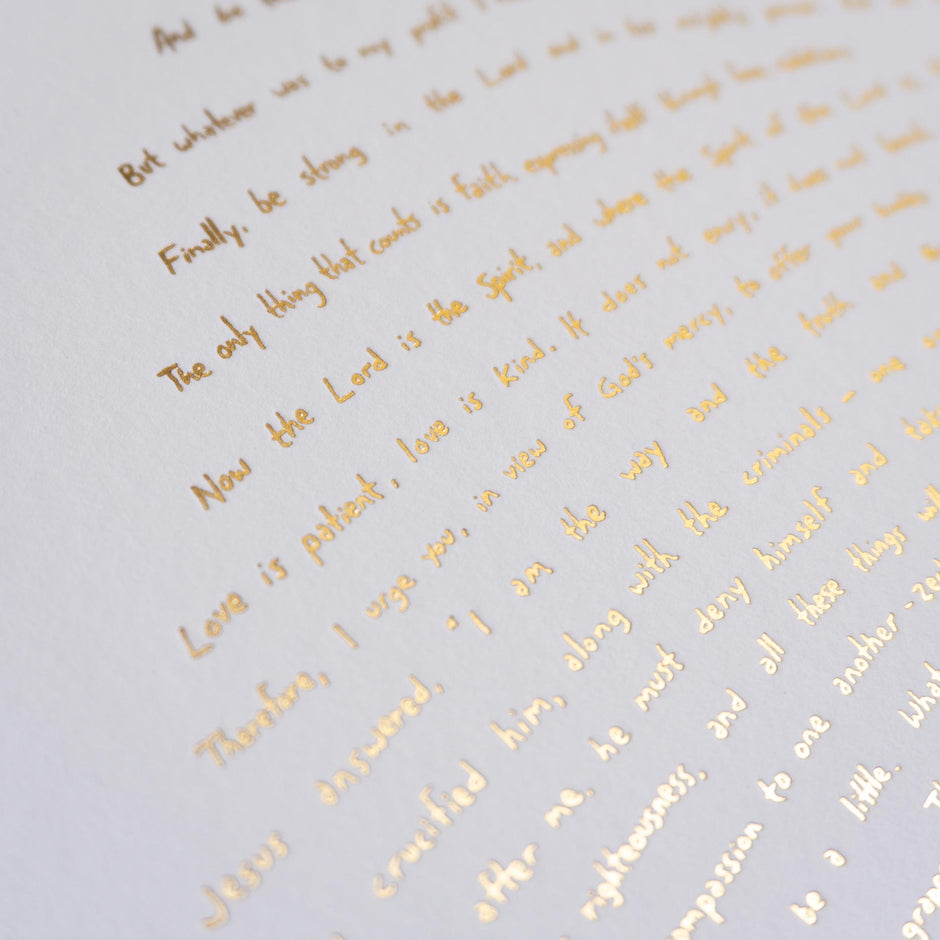 And he
But whatever was to my profit I
Finally, be strong in the Lord and in his mighty power.
The only thing that counts is faith expressing itself through love.
Now the Lord is the Spirit, and where the Spirit of the Lord is,
Love is patient, love is kind. It does not envy, it does not boast,
Therefore, I urge you, in view of God's mercy, to offer your bodies
Jesus answered, "I am the way and the truth and the
crucified him, along with the criminals - one on
after me. he must deny himself and take
righteousness, and all these things will
compassion to one another - Zech
be a little. What